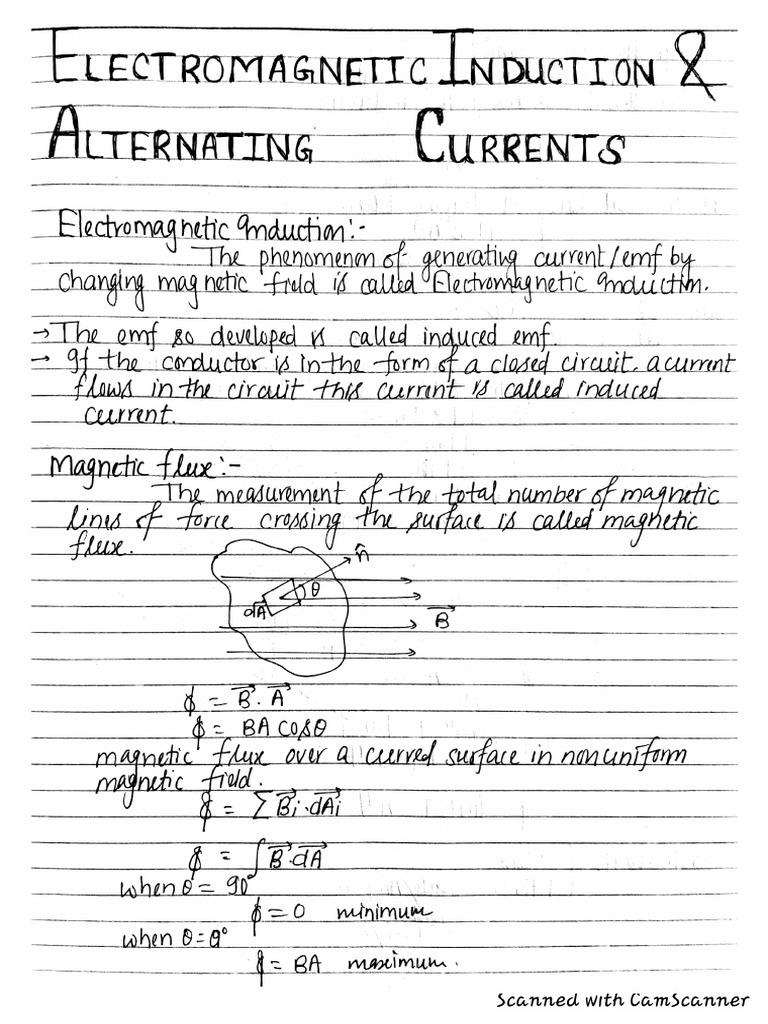 ELECTROMAGNETIC INDUCTION &
ALTERNATING CURRENTS
Electromagnetic Induction:-
The phenomenon of generating current/emf by
changing magnetic field is called Electromagnetic Induction.
→ The emf so developed is called induced emf.
→ If the conductor is in the form of a closed circuit, a current
flows in the circuit this current is called induced
current.
Magnetic flux:-
The measurement of the total number of magnetic
lines of force crossing the surface is called magnetic
flux.
n̂
θ
dA
B⃗
ϕ = B⃗. A⃗
ϕ = BA cosθ
magnetic flux over a curved surface in nonuniform
magnetic field.
ϕ = Σ B⃗i · dA⃗i
ϕ = ∫ B⃗·dA⃗
when θ = 90°
ϕ = 0 minimum
when θ = 0°
ϕ = BA maximum.
Scanned with CamScanner